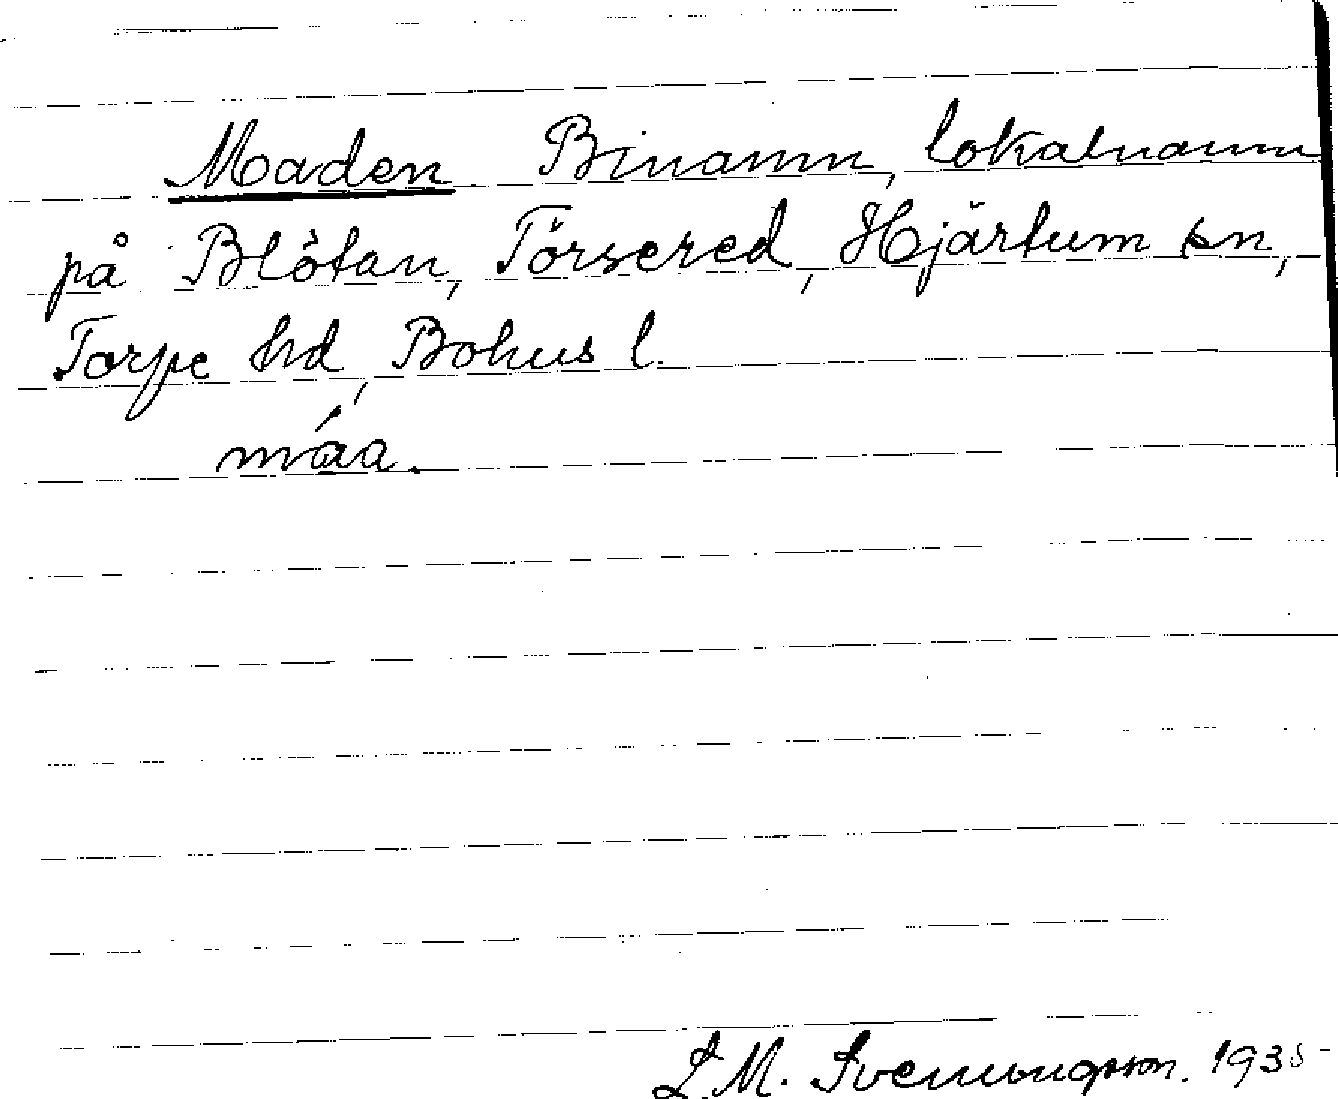 Maden Binamn, lokalnamn
på Blötan, Törsered, Hjärtum sn,
Torpe hd, Bohus l.
máa.
L.M. Svenungsson. 1935